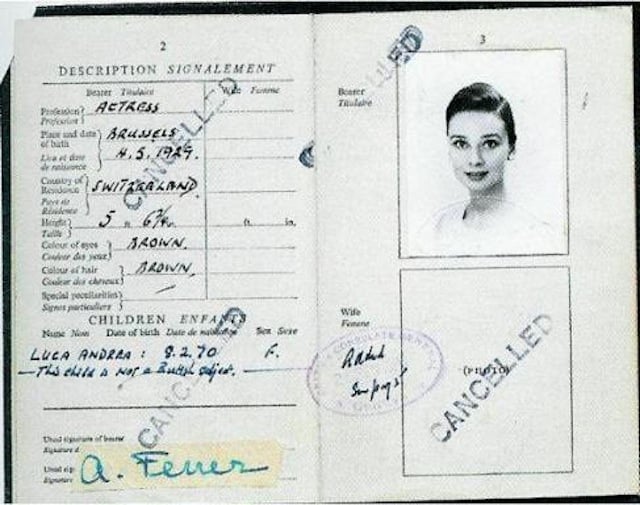 2
DESCRIPTION SIGNALEMENT
Bearer Titulaire Wife Femme
Profession Profession ACTRESS
Place and date of birth BRUSSELS
Lieu et date de naissance 4.5.1929.
Country of Residence SWITZERLAND
Pays de Résidence
Height Taille 5 6¾ ft. in.
Colour of eyes BROWN.
Couleur des yeux
Colour of hair BROWN.
Couleur des cheveux
Special peculiarities
Signes particuliers
CANCELLED
CHILDREN ENFANTS
Name Nom Date of birth Date de naissance Sex Sexe
LUCA ANDREA: 8.2.70 F.
This child is not a British subject.
CANCELLED
Usual signature of bearer
Signature d
Usual sig
Signature
A. Ferrer
3
CANCELLED
Bearer
Titulaire
Wife
Femme
(PHOTO)
CANCELLED